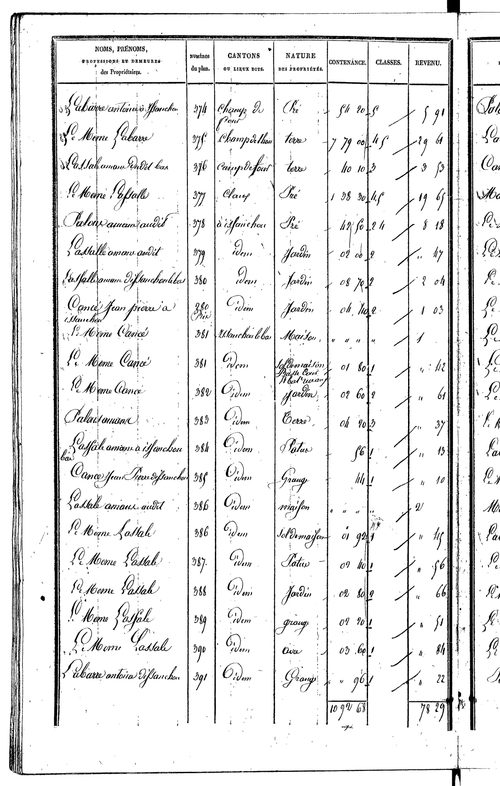 NOMS, PRÉNOMS, PROFESSIONS ET DEMEURES des Propriétaires. NUMÉROS du plan. CANTONS OU LIEUX DITS. NATURE DES PROPRIÉTÉS. CONTENANCE. CLASSES. REVENU.
Labarre antoine à issanchon 374 Champ de four Pré " 54 20 5 5 91
Le Meme Labarre 375 Champ de four terre 7 79 00 45 29 61
Lassale amans dudit bas 376 camp de four terre " 40 10 3 3 53
Le Meme Lassalle 377 Claus Pré 1 38 30 45 19 65
Palous amans audit 378 à issanchon Pré 42 50 24 8 18
Lassalle amans audit 379 idem Jardin 02 00 2 " 47
Lassalle amans d'issanchon le bas 380 idem Jardin 08 70 2 2 04
Cancé Jean pierre à issanchon 380 bis idem Jardin 04 40 2 1 03
Le Meme Cancé 381 issanchon le bas Maison " " " " 1
Le Meme Cancé 381 Idem Sol de maison 01 80 1 " 42
Le Meme Cancé 382 Idem Jardin 02 60 2 " 61
Palous amans 383 Idem Terre 04 20 3 " 37
Lassale amans à issanchon bas 384 Idem Patus 56 1 " 13
Cance Jean Pierre d'issanchon 385 Idem Grange 44 1 " 10
Lassale amans audit 386 Idem maison " " " 2
Le Meme Lassale 386 Idem Sol de maison 01 92 1 " 45
Le Meme Lassale 387 Idem Patus 02 40 1 " 56
Le Meme Lassale 388 Idem Jardin 02 80 2 " 66
Le Meme Lassale 389 Idem grange 02 20 1 " 51
Le Meme Lassale 390 Idem 03 60 1 " 84
Labarre antoine d'issanchon 391 Idem Grange " " 96 1 " 22
10 92 68 78 29